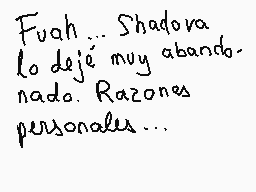 Fuah... Shadova
lo dejé muy abando-
nado. Razones
personales...